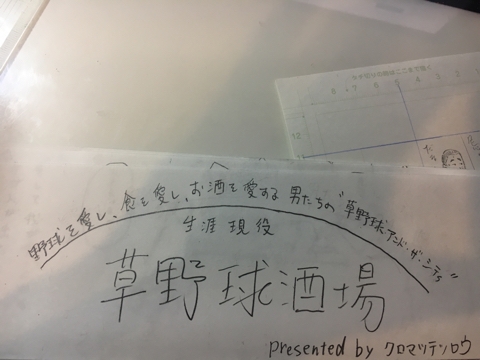 野球を愛し、食を愛し、お酒を愛する 男たちの"草野球・アンド・ザ・シティ"
生涯現役
草野球酒場
presented by クロマツテツロウ